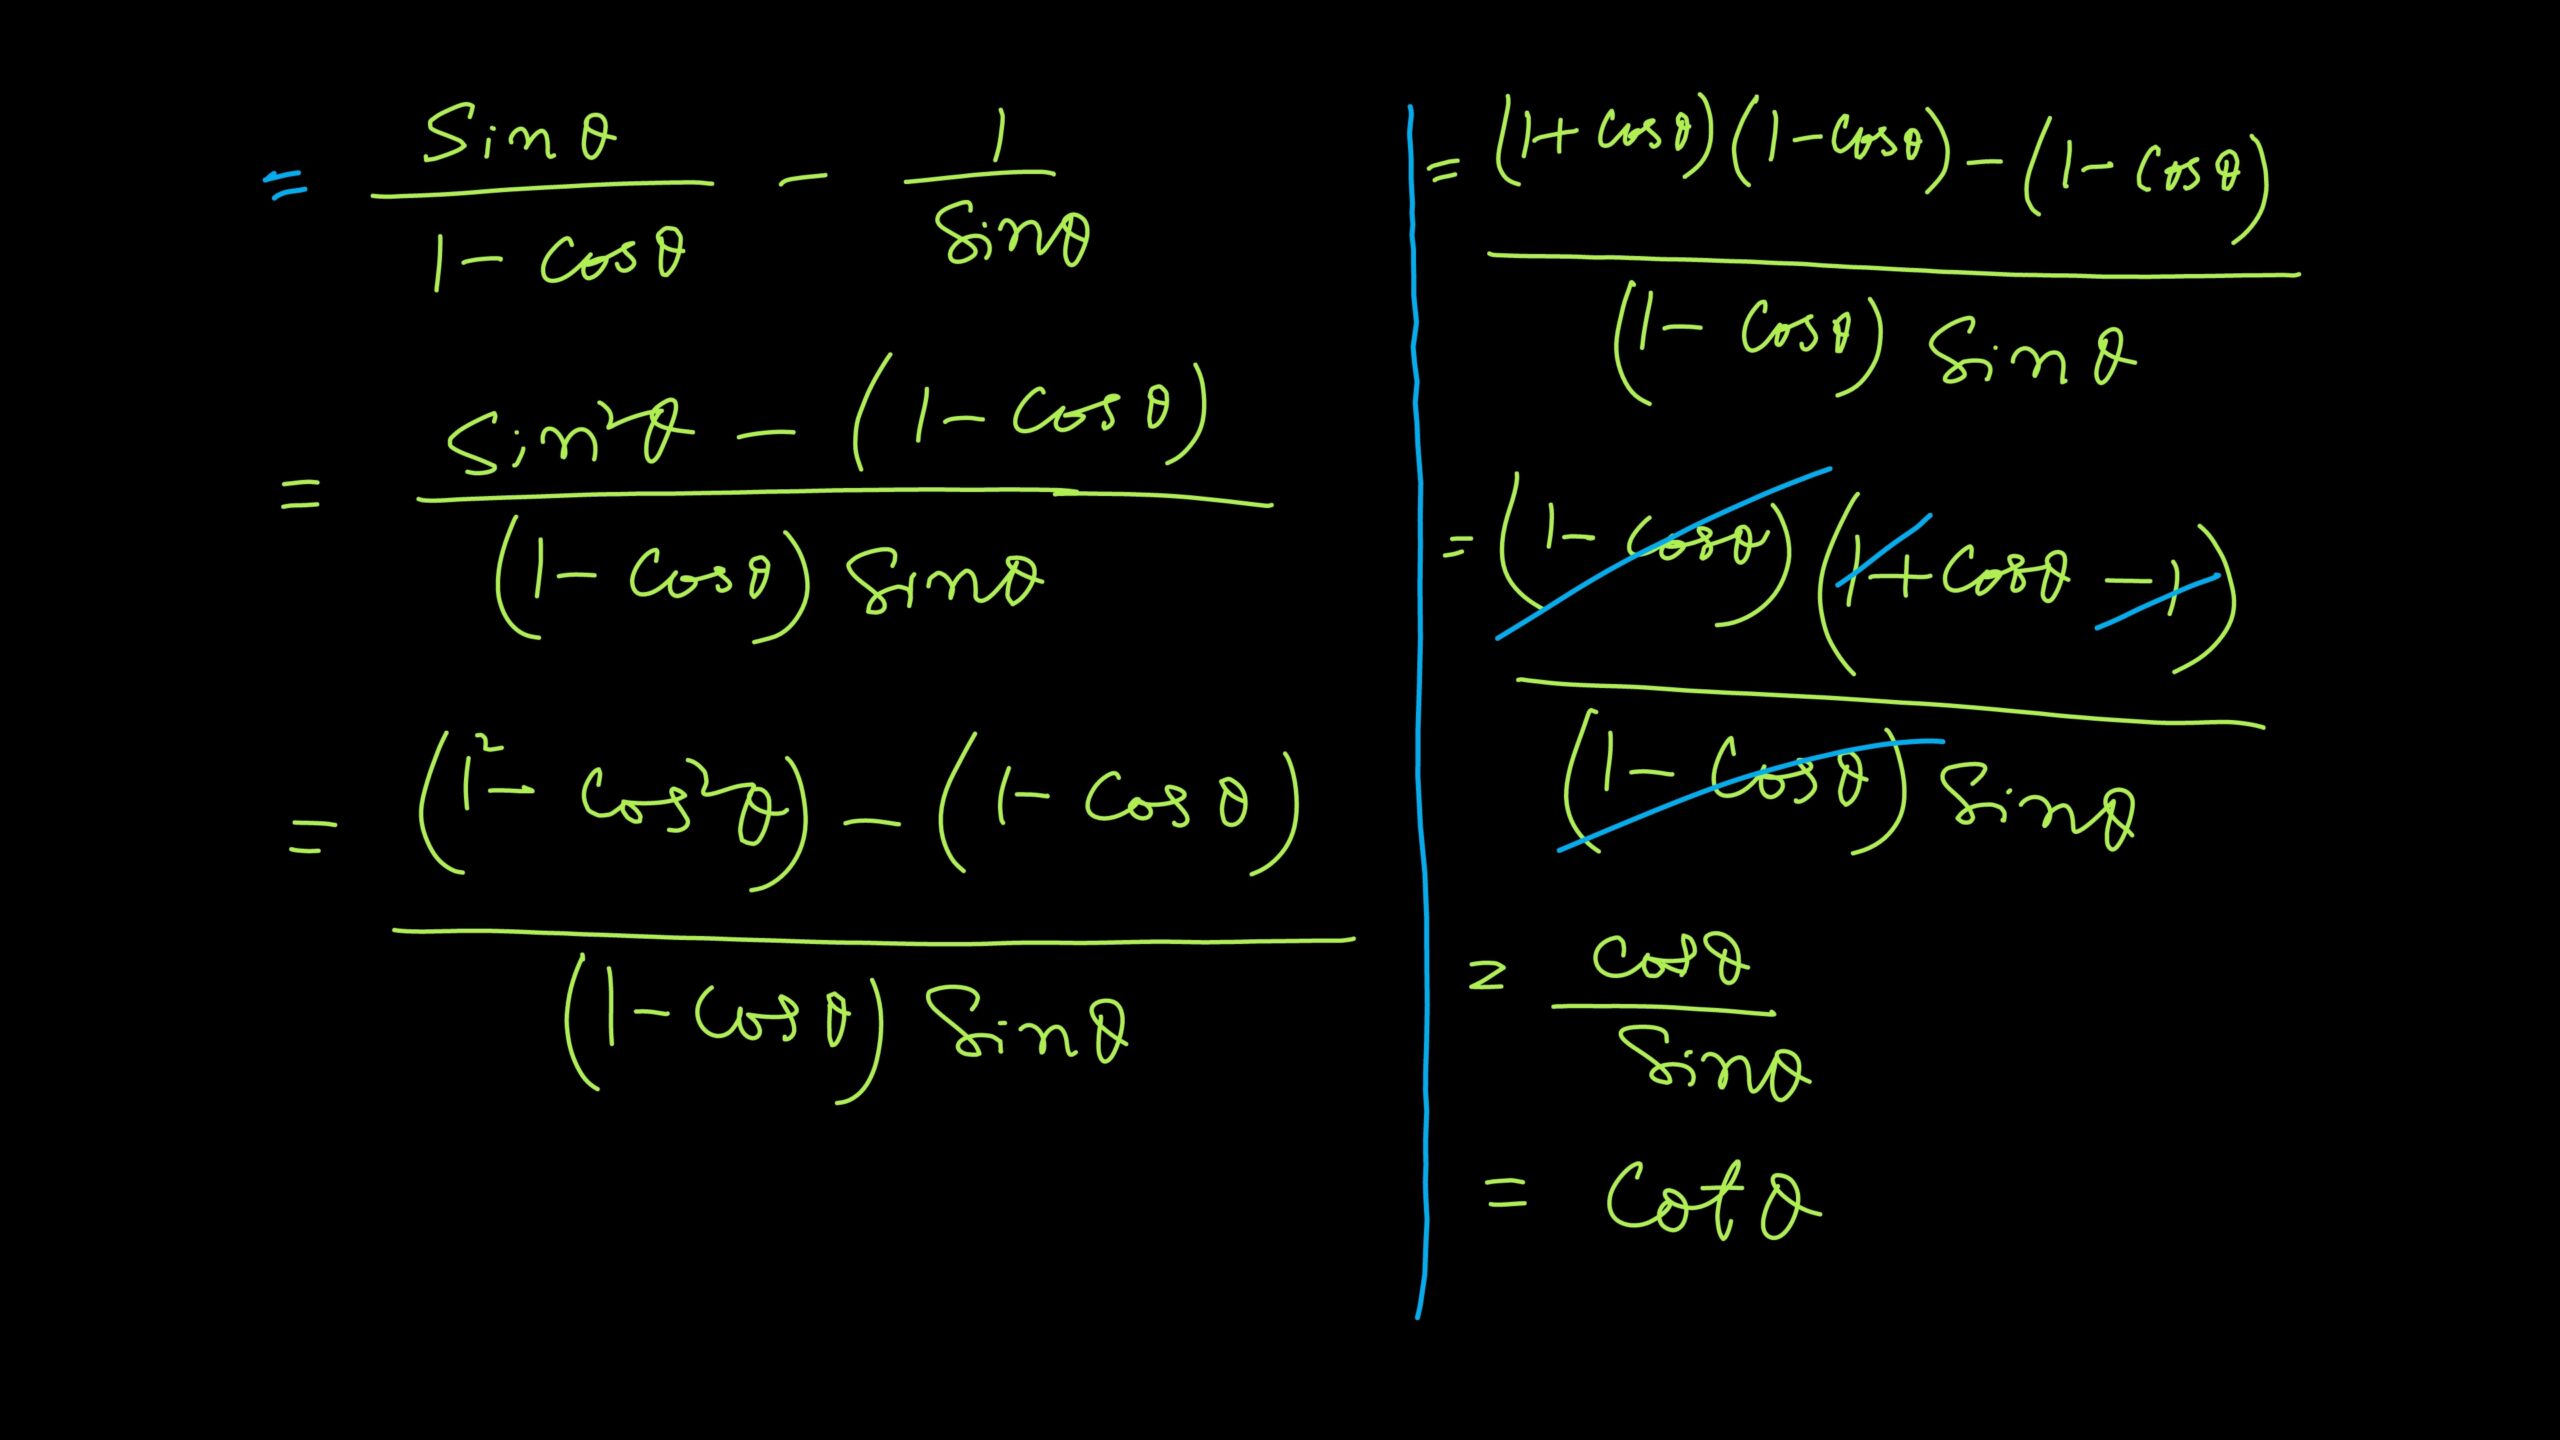 = Sin θ / 1 - Cos θ - 1 / Sin θ
= Sin²θ - (1 - Cos θ) / (1 - Cos θ) Sin θ
= (1² - Cos²θ) - (1 - Cos θ) / (1 - Cos θ) Sin θ
= (1 + Cos θ)(1 - Cos θ) - (1 - Cos θ) / (1 - Cos θ) Sin θ
= (1 - Cos θ)(1 + Cos θ - 1) / (1 - Cos θ) Sin θ
= Cos θ / Sin θ
= Cot θ